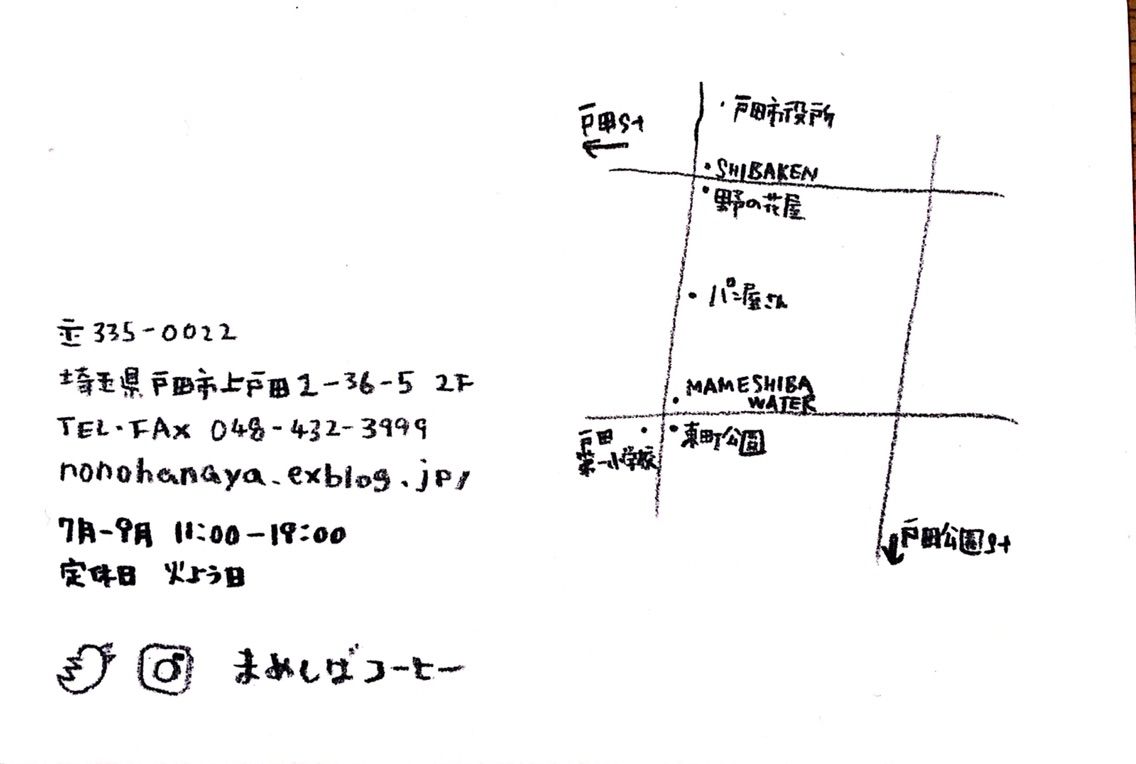 〒335-0022
埼玉県戸田市上戸田1-36-5 2F
TEL・FAX 048-432-3999
nonohanaya.exblog.jp/
7月-9月 11:00-19:00
定休日 火よう日
まめしばコーヒー
戸田市役所
戸田st
SHIBAKEN
野の花屋
パン屋さん
MAMESHIBA
WATER
戸田
第一小学校
東町公園
戸田公園st